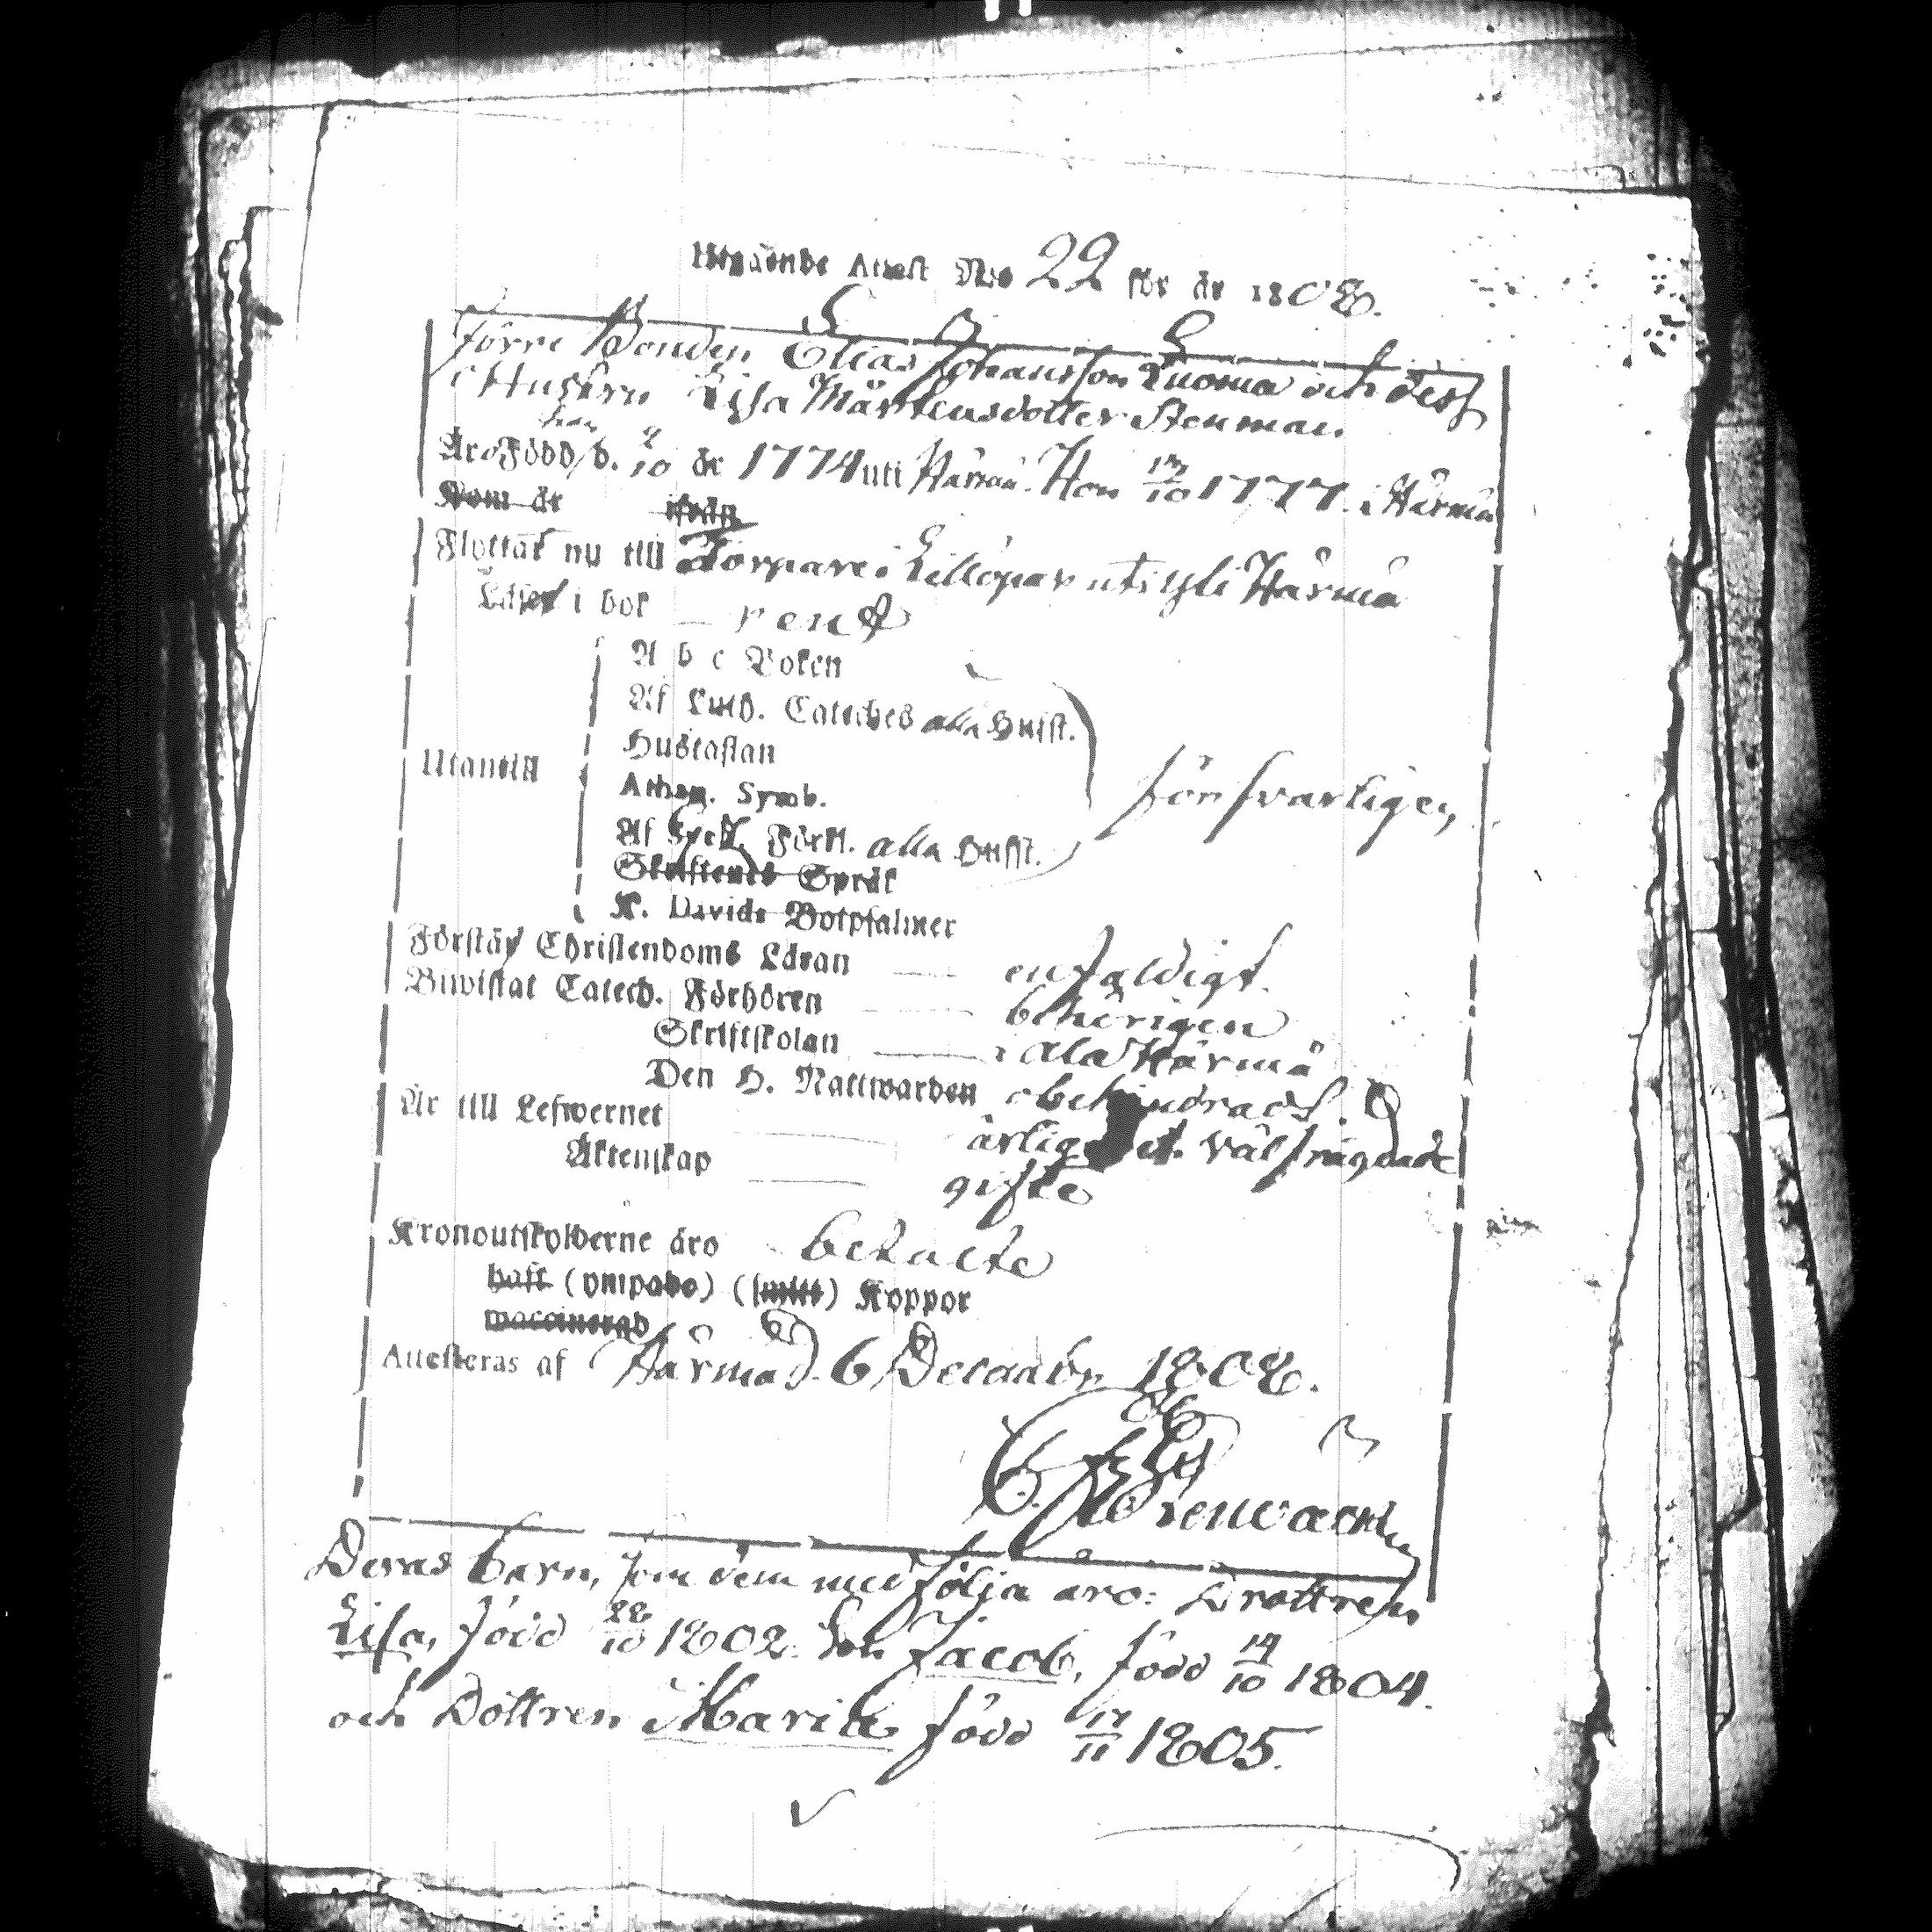 Utgående Attest N:o 22 för år 1808.
Förre Bonden Elias Johansson Luoma och dess
Hustru Lisa Mårtensdotter Stenman.
han
Äro Född d. 2/10 år 1774 uti Härmä. Hon 13/10 1777. i Härmä
Kom år ifrån
Flyttar nu till Torpare i Lillöpar uti Yli Härmä
Läser i bok — rent
A b c Boken
Af Luth. Cateches alla Hufst.
Hustaflan
Utantill
Athan. Symb.
försvarligen
Af Förkl. alla Hufst.
Skriftenes Språk
K. Davids Botpsalmer
Förstår Christendoms Läran — enfaldigt.
Biwistat Catech. Förhören — behörigen
Skriftskolan — i Ala Härmä
Den H. Nattwarden obehindradt.
Är till Lefwernet — ärlige et. väl frägdade
Äktenskap — gifte
Kronoutskylderne äro betalte
haft (ympade) Koppor
waccinerad
Attesteras af Härmä d. 6 Decembr. 1808.
Deras barn, som dem medfölja äro: Dottren
Lisa, född 28/10 1802. Son Jacob, född 14/10 1804.
och Dottren Maria född 17/11 1805.